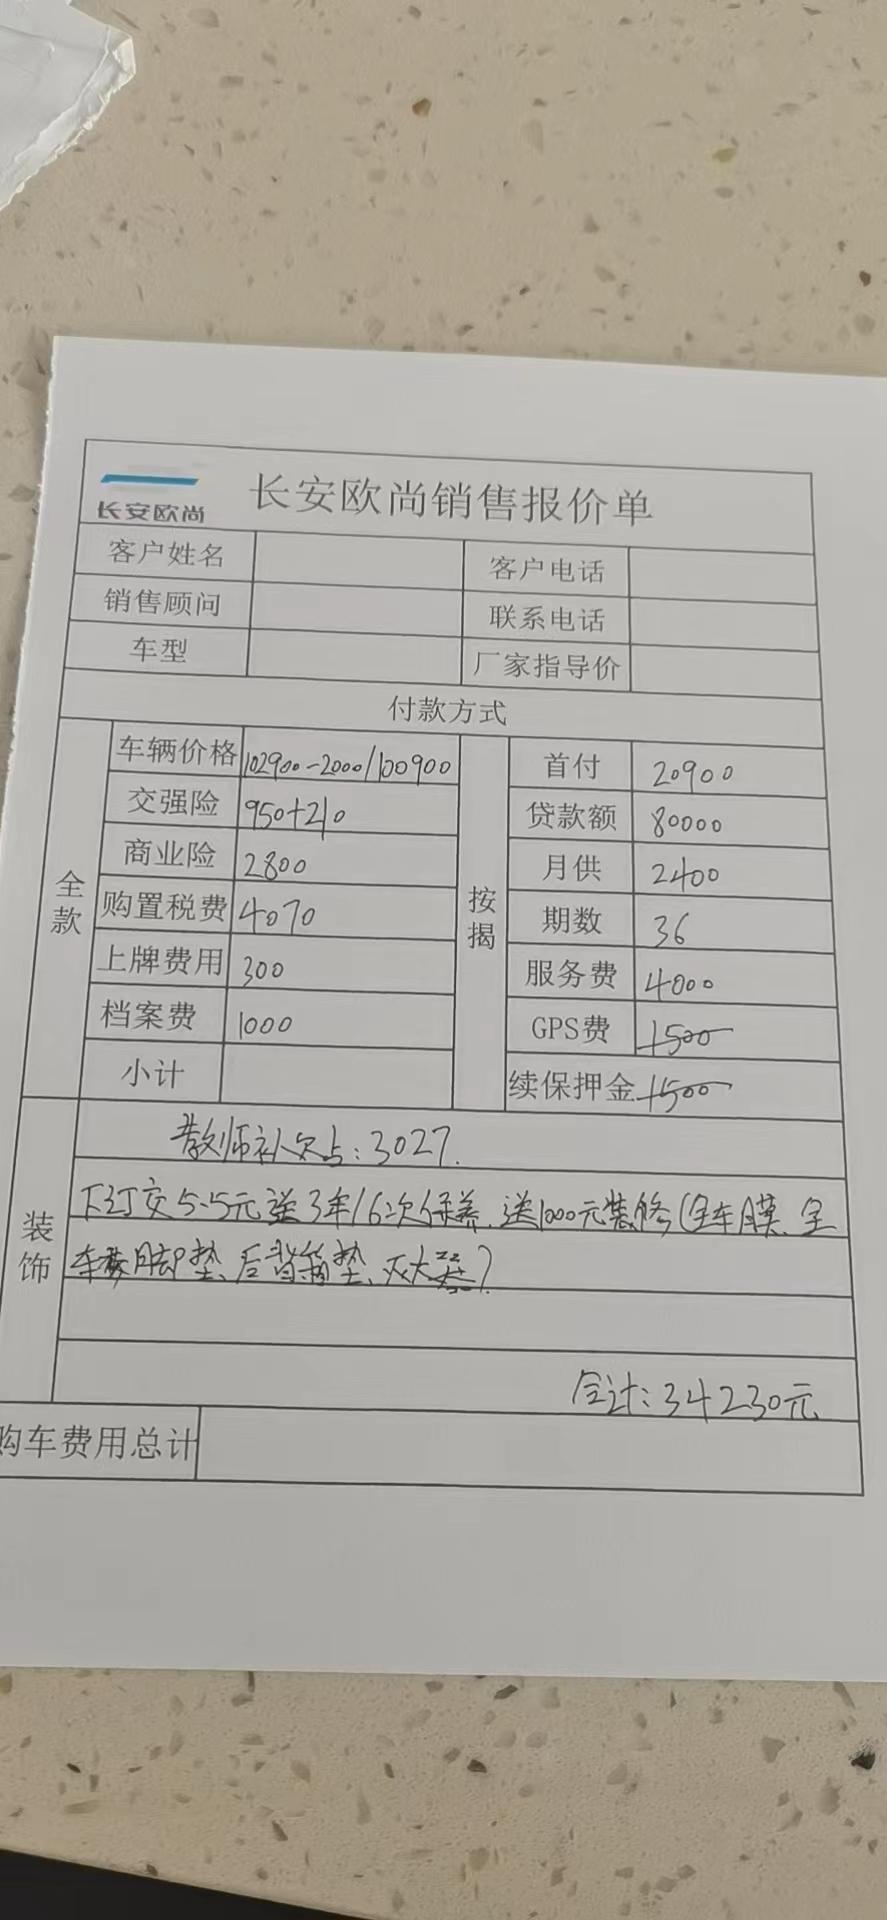 长安欧尚
长安欧尚销售报价单
客户姓名 客户电话
销售顾问 联系电话
车型 厂家指导价
付款方式
全款
车辆价格 102900-2000/100900
交强险 950+210
商业险 2800
购置税费 4070
上牌费用 300
档案费 1000
小计
按揭
首付 20900
贷款额 80000
月供 2400
期数 36
服务费 4000
GPS费 1500
续保押金 1500
装饰
教师补欠点:3027.
下订交5.5元送3年/6次保养.送1000元装修(全车膜、全
车脚垫、后背箱垫、灭火器)
合计:34230元
购车费用总计